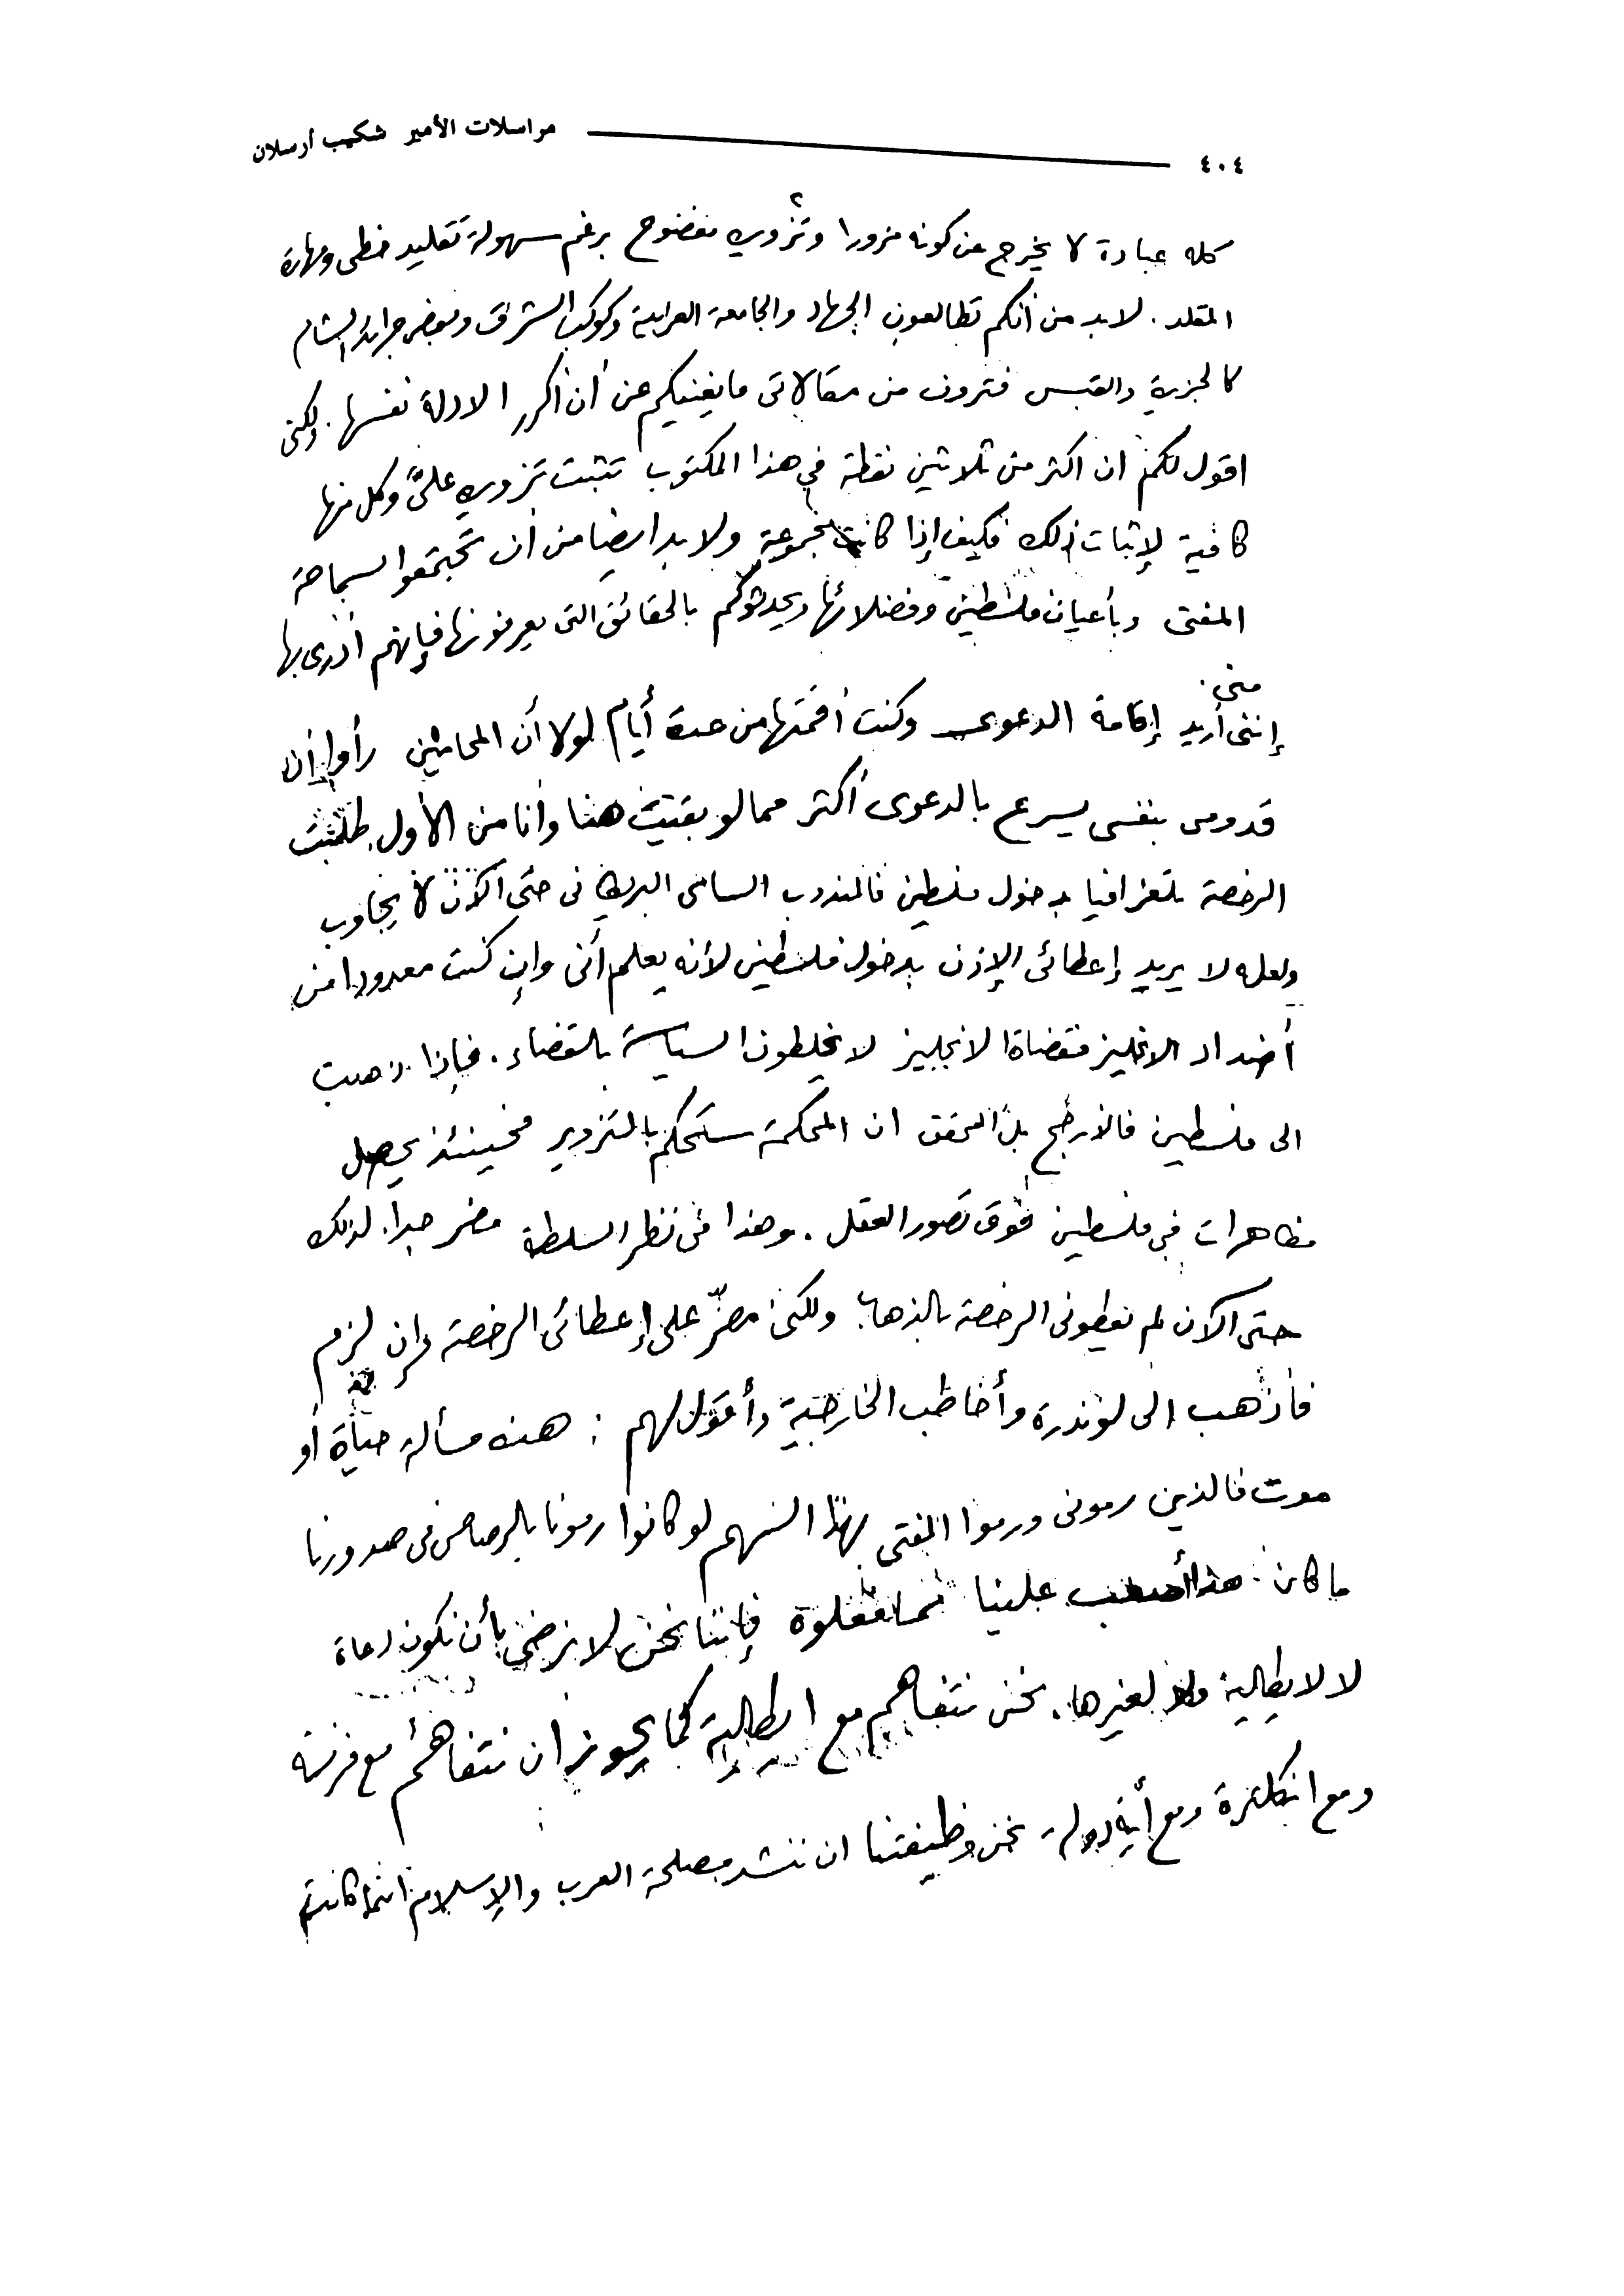 ٤٠٤ مراسلات الأمير شكيب أرسلان
كله عبارة لا يخرج عن كونه مزورا وتزويره مفضوح برغم سهولة تقليد خطى ومهارة
المقلد . لا بد من أنكم تطالعون الجهاد والجامعة العربية وكوكب الشرق وبعض جرائد الشام
كالجزيرة والقبس فترون من مقالاتى ما يغنيكم عن أن أكرر الادلة نفسها . ولكنى
اقول لكم ان اكثر من ثلاثين نقطة في هذا المكتوب تثبت تزويره علىَّ وكل منها
كافية لإثبات ذلك فكيف إذا كانت مجموعة ولا بد ايضا من أن تجتمعوا بسماحة
المفتى وبأعيان فلسطين وفضلائها ويحدثوكم بالحقائق التى يعرفونها فإنهم أدرى بها
منى .
إننى أريد إقامة الدعوى وكنت أقمتها من عدة أيام لولا أن المحامين رأوا أن
قدومى بنفسى يسرع بالدعوى أكثر مما لو بقيت هنا وأنا من الأول طلبت
الرخصة تلغرافيا بدخول فلسطين فالمندوب السامى البريطانى حتى الآن لا يجاوب
ولعله لا يريد إعطائى الإذن بدخول فلسطين لأنه يعلم أنى وإن كنت معدودا من
أضداد الانجليز فقضاة الانجليز لا يخلطون السياسة بالقضاء . فإذا ذهبت
الى فلسطين فالأرجح بل المحقق ان المحكمة ستحكم بالتزوير فحينئذ يحصل
مظاهرات في فلسطين فوق تصور العقل . وهذا فى نظر السلطة مضر جدا . لذلك
حتى الآن لم يعطونى الرخصة بالذهاب ولكنى مصرّ على إعطائى الرخصة وإن لزم
فأذهب الى لوندرة وأخاطب الخارجية وأقول لهم : هذه مسألة حياة أو
موت فالذين رمونى ورموا المفتى بهذا السهم لو كانوا رمونا بالرصاص فى صدورنا
ما كان هذا أصعب علينا مما فعلوه فإننا نحن لا نرضى بأن نكون دعاة
لا لايطالية ولا لغيرها . نحن نتفاهم مع ايطالية كما يجوز ان نتفاهم مع فرنسة
ومع انكلترة ومع أية دولة نحن وظيفتنا ان ننشد مصلحة العرب والإسلام انما كانت